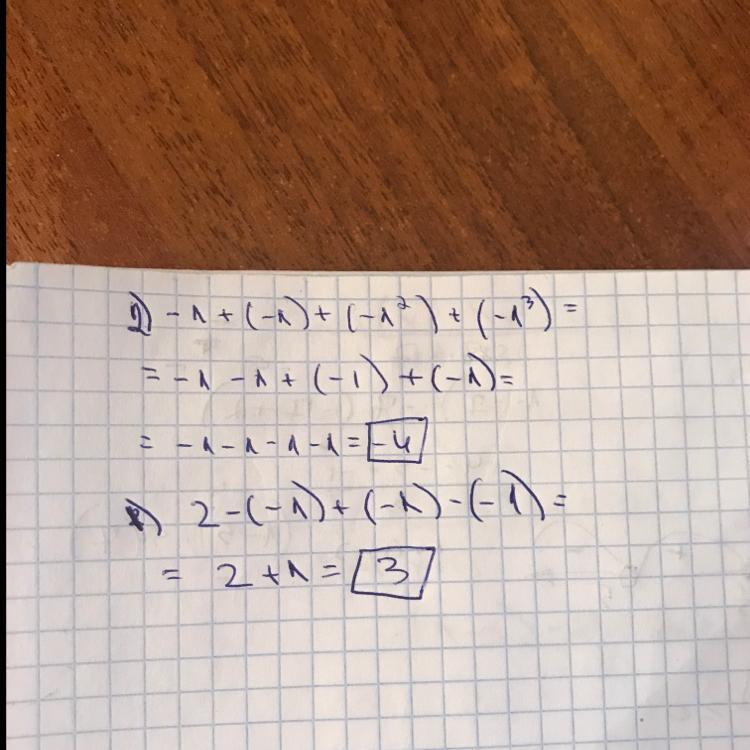 2) -1 + (-1) + (-1²) + (-1³) =
= -1 - 1 + (-1) + (-1) =
= -1 - 1 - 1 - 1 = -4
2 - (-1) + (-1) - (-1) =
= 2 + 1 = 3